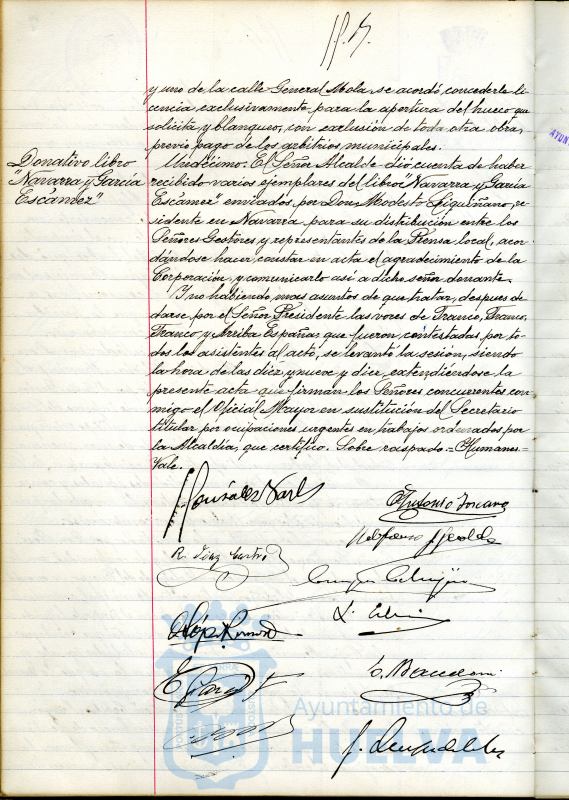 y uno de la calle General Mola, se acordó, concederle li-
cencia exclusivamente para la apertura del hueco que
solicita y blanqueo, con exclusión de toda otra obra,
previo pago de los arbitrios municipales.
Donativo libro
"Navarra y García
Escámez"
Undécimo: El Señor Alcalde dió cuenta de haber
recibido varios ejemplares del libro "Navarra y García
Escámez" enviados por Don Modesto re-
sidente en Navarra para su distribución entre los
Señores Gestores y representantes de la Prensa local, acor-
dándose hacer constar en acta el agradecimiento de la
Corporación y comunicarlo así a dicho señor donante.
Y no habiendo mas asuntos de que tratar, despues de
darse por el Señor Presidente las voces de Franco, Franco,
Franco y Arriba España; que fueron contestadas por to-
dos los asistentes al acto, se levantó la sesión, siendo
la hora de las diez y nueve y diez, extendiéndose la
presente acta que firman los Señores concurrentes con-
migo el Oficial Mayor en sustitución del Secretario
titular por ocupaciones urgentes en trabajos ordenados por
la Alcaldía, que certifico. Sobre raspado = Humanes =
Vale.
González
Antonio
R. Díaz Castro
López
Ayuntamiento de
HUELVA